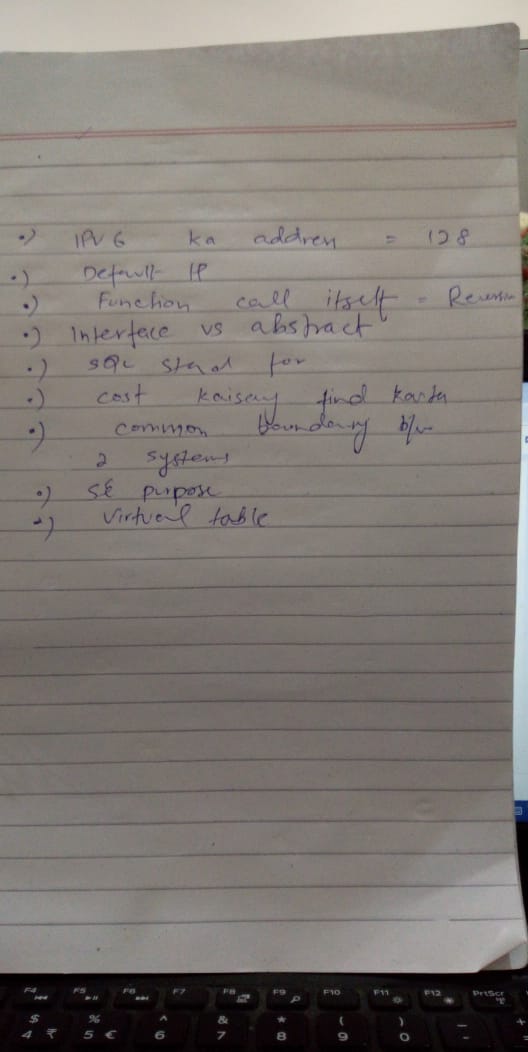 •) IPV 6 ka address = 128
•) Default IP
•) Function call itself = Recursion
•) Interface vs abstract
•) SQL stand for
•) cost kaisay find karta
•) common boundary b/w
2 systems
•) SE purpose
•) Virtual table
F4 F5 F6 F7 F8 F9 F10 F11 F12 PrtScr
$ % ^ & * ( ) _ +
4 ₹ 5 € 6 7 8 9 0 -